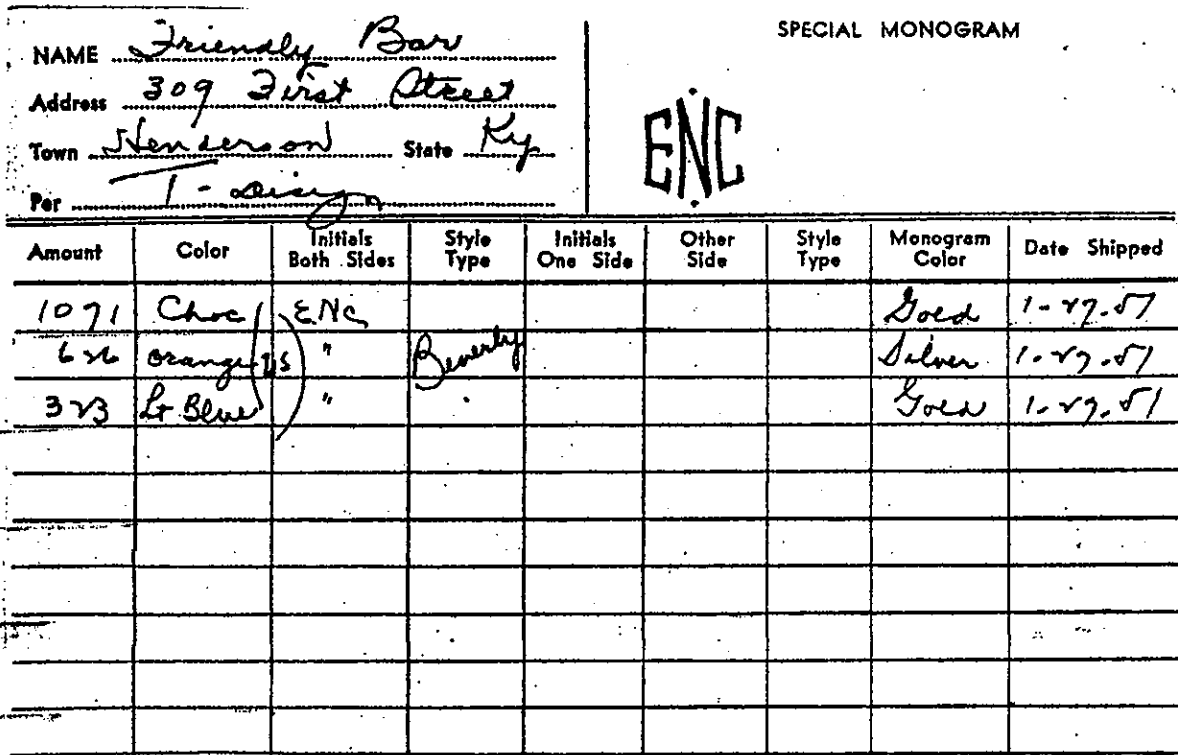 SPECIAL MONOGRAM
NAME Friendly Bar
Address 309 First Street
Town Henderson State Ky
Per T-Design
ENC
Amount Color Initials Both Sides Style Type Initials One Side Other Side Style Type Monogram Color Date Shipped
1071 Choc ENC Gold 1-27-51
626 orange " Beverly Silver 1-27-51
323 Lt Blue " Gold 1-27-51